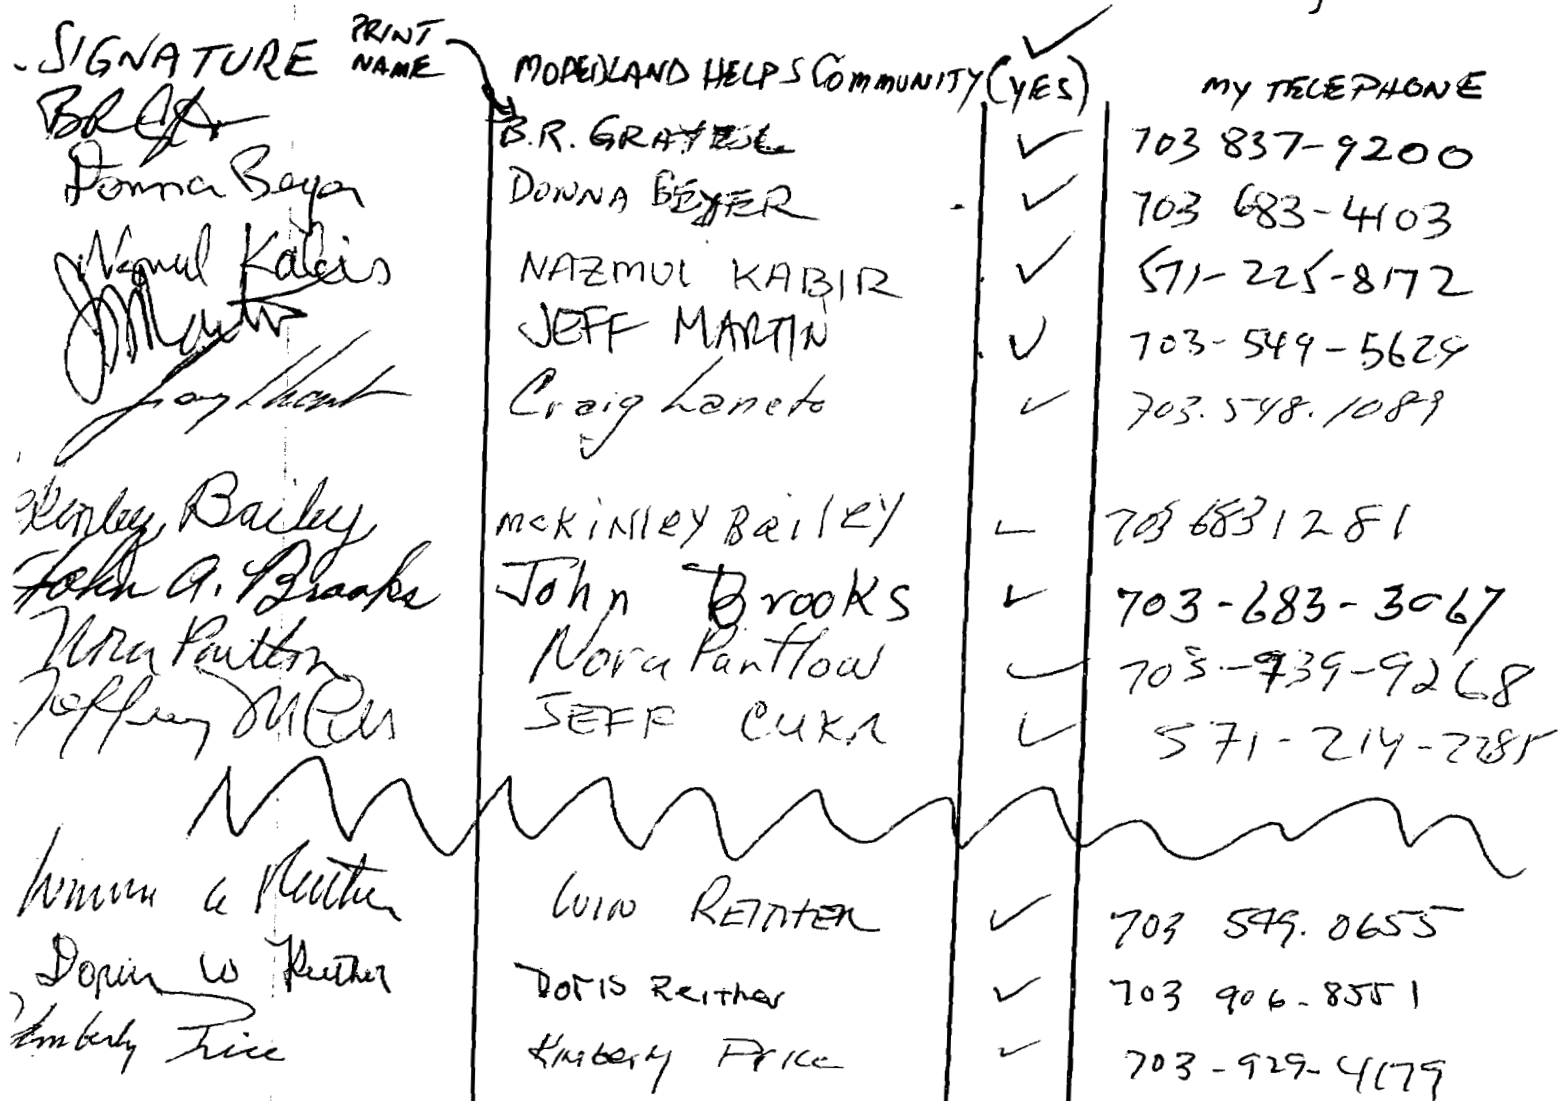 SIGNATURE PRINT NAME MOPEDLAND HELPS COMMUNITY (YES) ✓ MY TELEPHONE
B.R. ✓ 703 837-9200
Donna Beyer DONNA BEYER ✓ 703 683-4103
Nazmul Kabir NAZMUL KABIR ✓ 571-225-8172
J Martin JEFF MARTIN ✓ 703-549-5629
Craig ✓ 703.548.1089
Bailey McKINLEY BAILEY ✓ 703 683 1281
John A. Brooks John Brooks ✓ 703-683-3067
Nora Nora ✓ 703-739-9268
Jeffrey JEFF ✓ 571-214-2285
✓ 703 549.0655
W Reither Doris Reither ✓ 703 906-8551
Kimberly Price Kimberly Price ✓ 703-929-4179